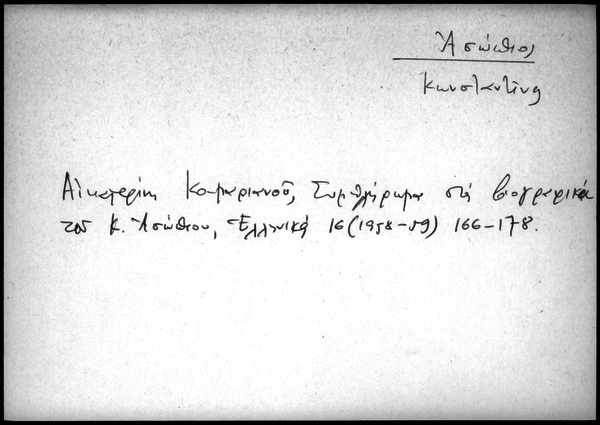 Ἀσώπιος
Κωνσταντῖνος
Αἰκατερίνη Κουμαριανοῦ, Συμπλήρωμα στὰ βιογραφικὰ
τοῦ Κ. Ἀσώπιου, Ἑλληνικά 16 (1958-59) 166-178.